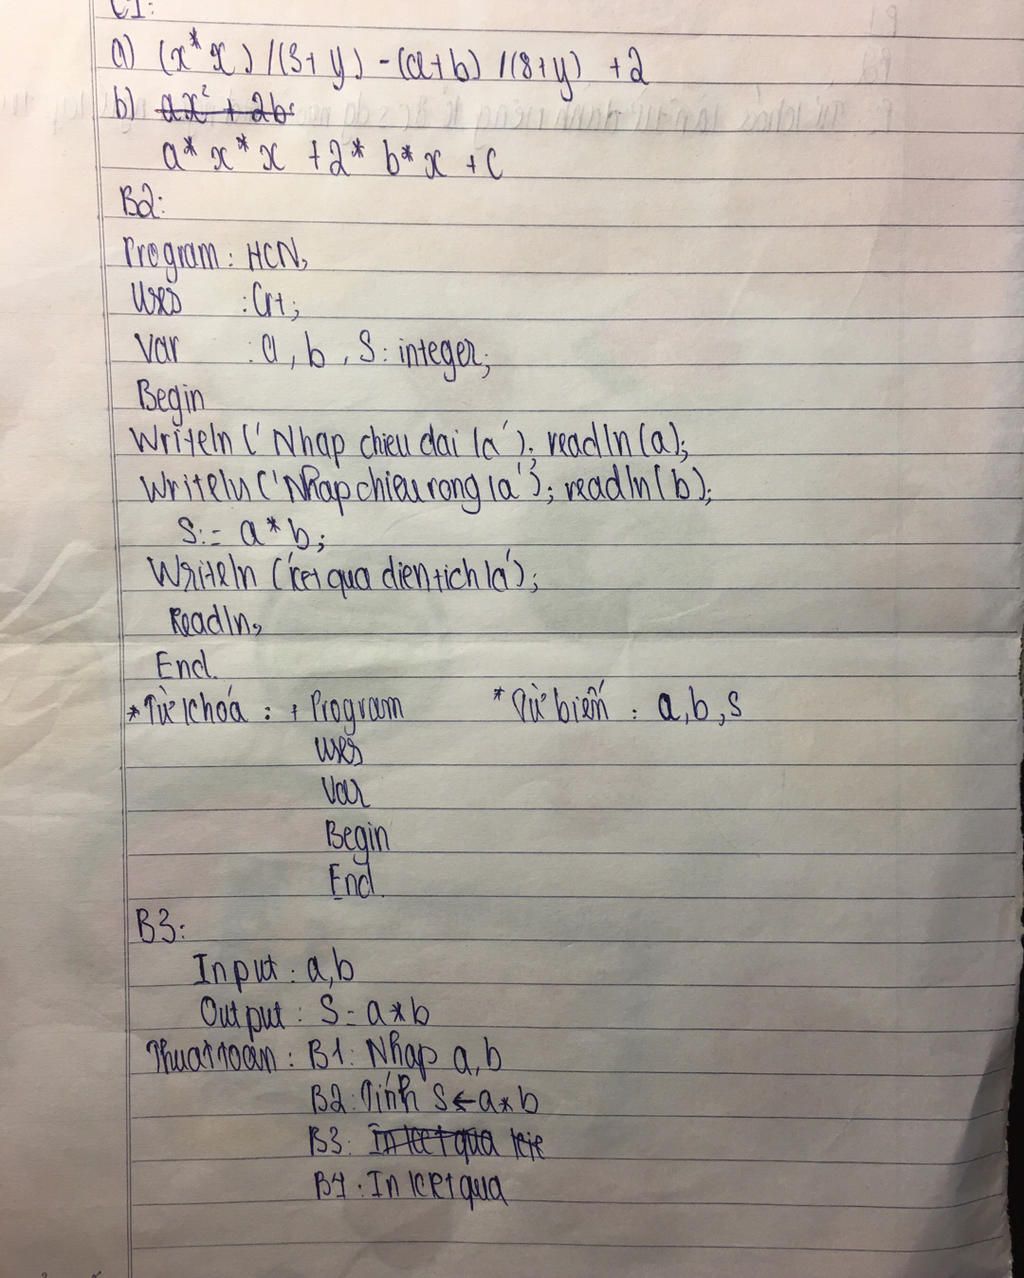 C1:
a) (x*x) / (3+y) - (a+b) / (8+y) +2
b) ax² + 2b
a*x*x +2*b*x +c
B2:
Program : HCN,
Uses : Crt;
Var : a, b, S: integer;
Begin
Writeln ('Nhap chieu dai la'); readln (a);
Writeln ('Nhap chieu rong la'); readln (b);
S:= a*b;
Writeln ('ket qua dien tich la');
Readln,
End.
*Từ khoá : + Program *Từ biến : a,b,s
uses
Var
Begin
End.
B3:
Input : a,b
Output : S = a*b
Thuat toan : B1: Nhap a,b
B2: Tính S←a*b
B3: In ket qua
B4: In ket qua